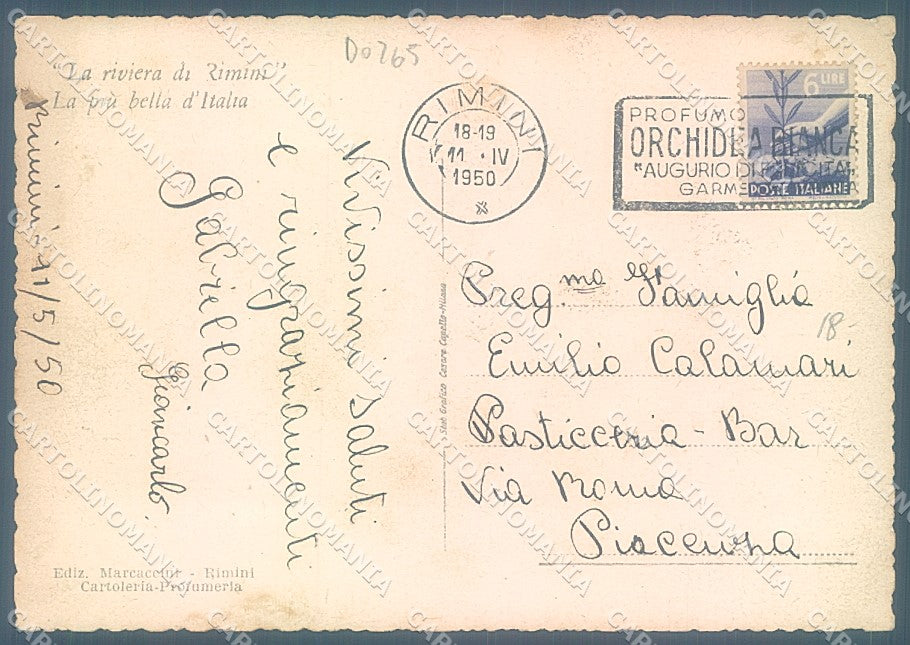 Do265
"La riviera di Rimini"
La più bella d'Italia
RIMINI
18-19
11 · IV
1950
PROFUMO
ORCHIDEA BIANCA
"AUGURIO DI
GARME
6 LIRE
POSTE ITALIANE
Rimini 11/5/50
Vivissimi saluti
e ringraziamenti
Gabriella
Giancarlo.
Preg.ma Famiglia
Emilio Calamari
Pasticceria - Bar
Via Roma
Piacenza
18-
Stab. Grafico Cesare Capello-Milano
Ediz. Marcaccini - Rimini
Cartoleria-Profumeria
CARTOLINOMANIA